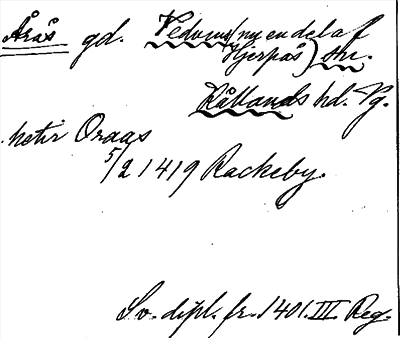 Årås gd. Vedums (nu en del af
Hjerpås) sn.
Kållands hd. Vg.
hetir Oraas
5/2 1419 Rackeby.
Sv. dipl. fr. 1401. III. Reg.